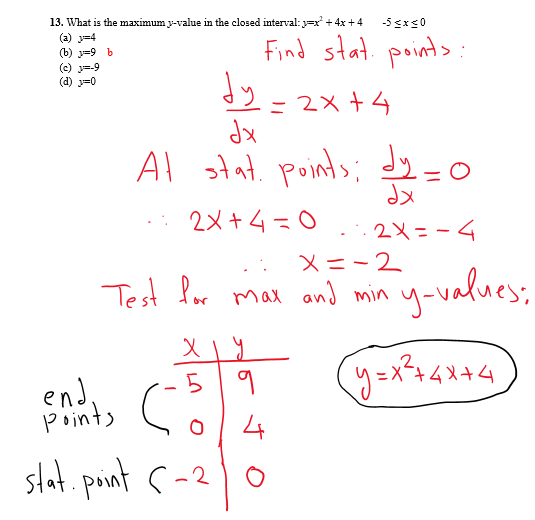 13. What is the maximum y-value in the closed interval: y=x² + 4x + 4 -5 ≤ x ≤ 0
(a) y=4
(b) y=9 b
(c) y=-9
(d) y=0
Find stat. points:
dy/dx = 2x + 4
At stat. points; dy/dx = 0
∴ 2x+4=0 ∴ 2x=-4
∴ x=-2
Test for max and min y-values;
x | y
end points -5 | 9
0 | 4
stat. point -2 | 0
y=x²+4x+4